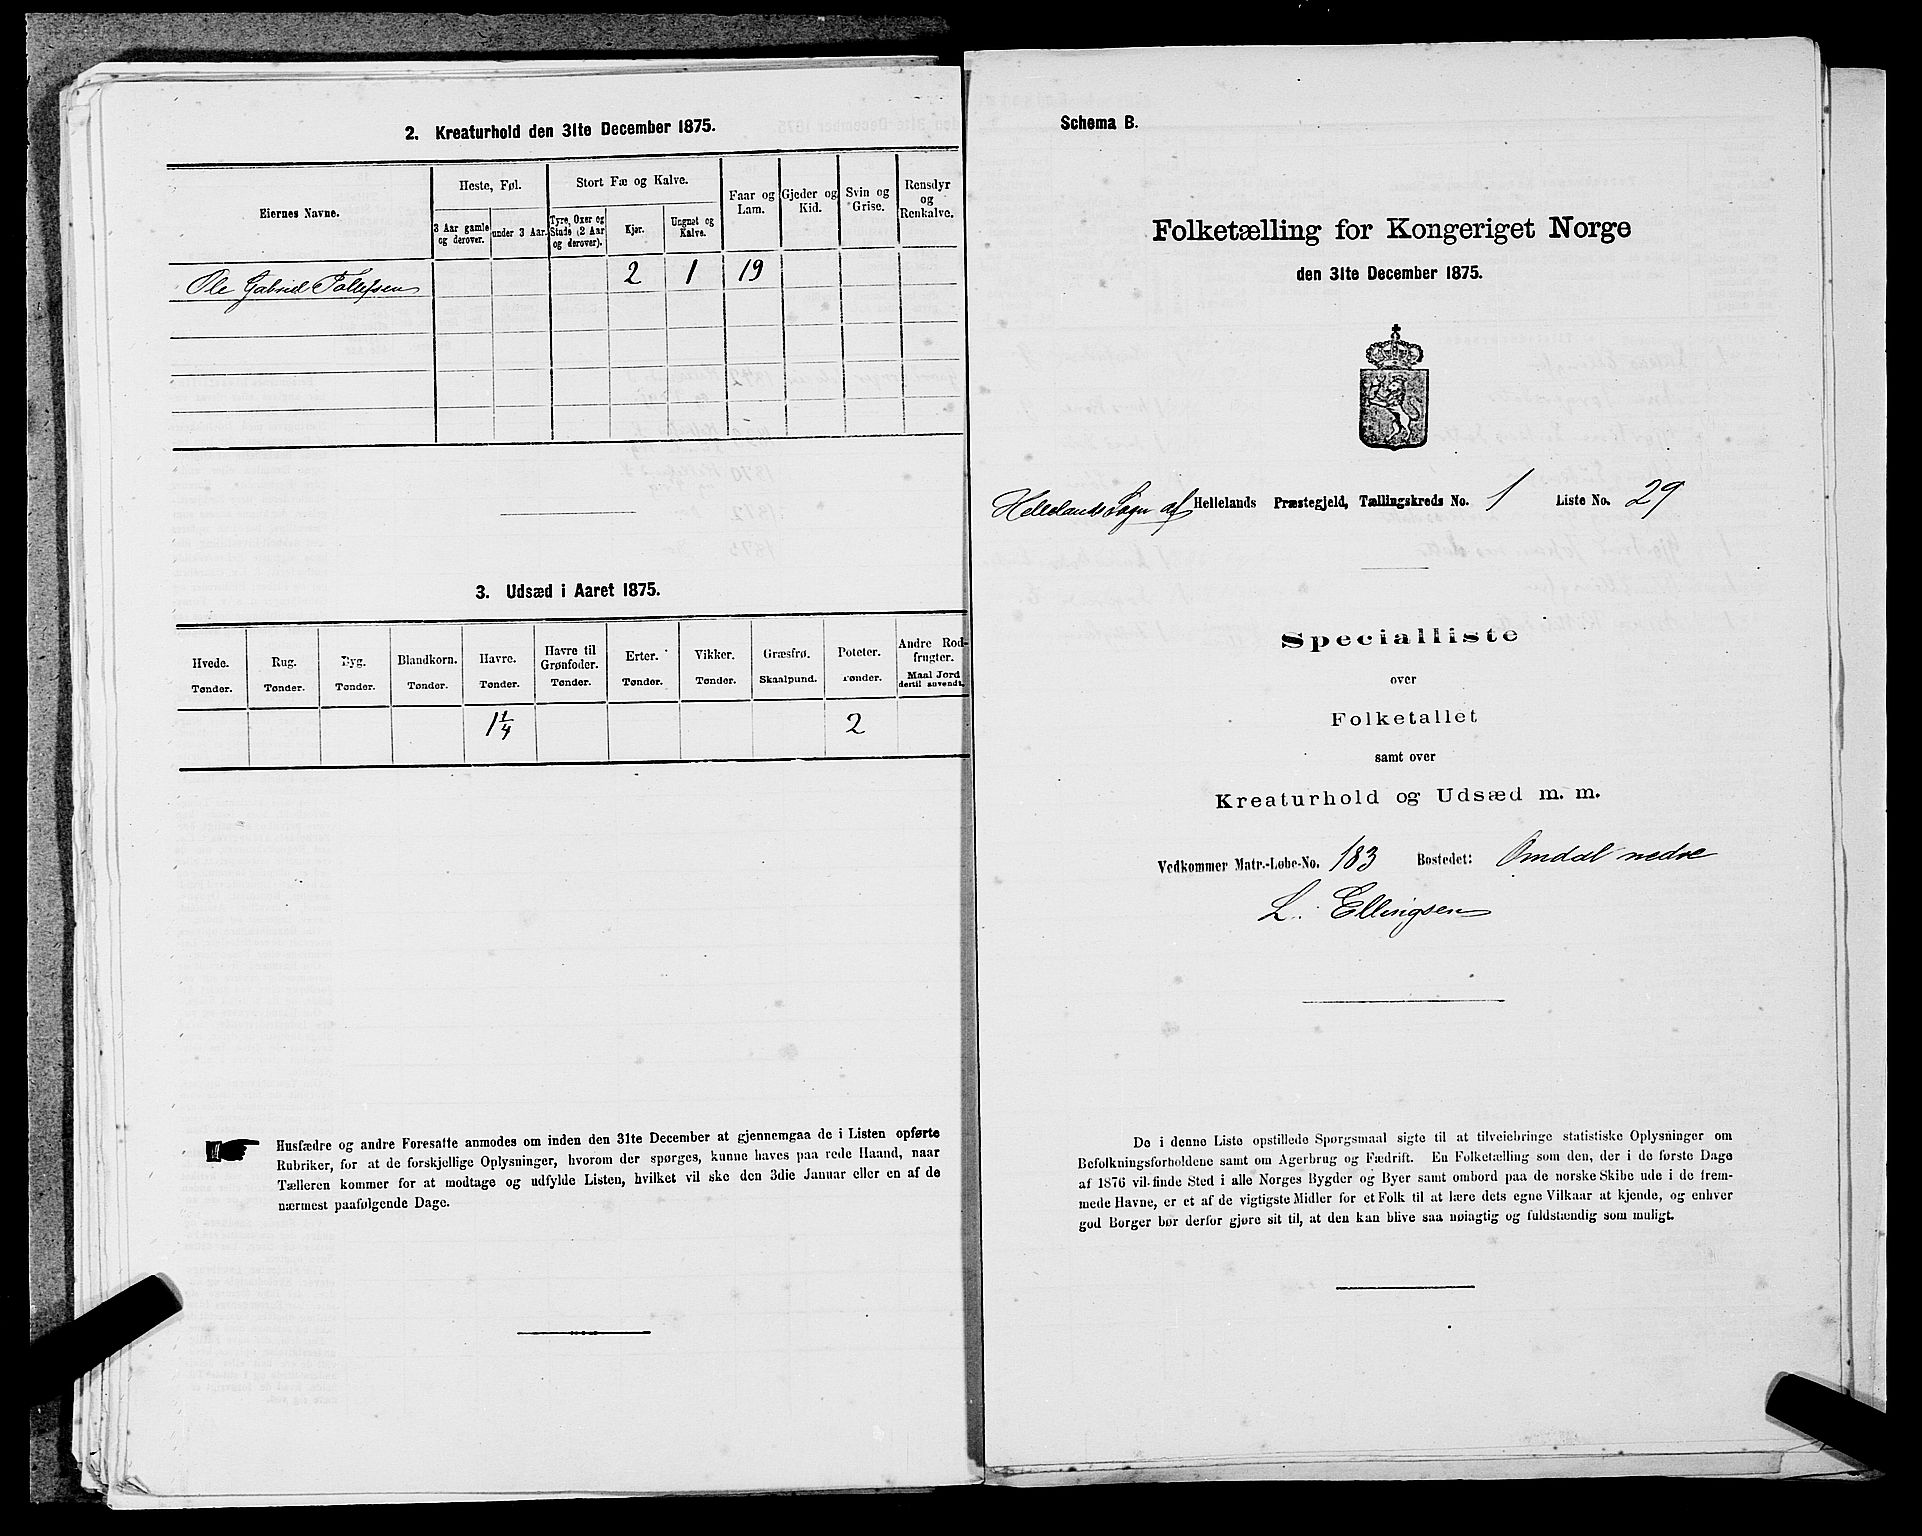 2. Kreaturhold den 31te December 1875.
Eiernes Navne.
Heste, Føl.
3 Aar gamle og derover.
under 3 Aar.
Stort Fæ og Kalve.
Tyre, Oxer og Stude (2 Aar og derover).
Kjør.
Ungnøt og Kalve.
Faar og Lam.
Gjeder og Kid.
Svin og Grise.
Rensdyr og Renkalve.
Ole Gabriel Tollefsen 2 1 19
3. Udsæd i Aaret 1875.
Hvede. Rug. Byg. Blandkorn. Havre. Havre til Grønfoder. Erter. Vikker. Græsfrø. Poteter. Andre Rodfrugter.
Tønder. Tønder. Tønder. Tønder. Tønder. Tønder. Tønder. Tønder. Skaalpund. Tønder. Maal Jord dertil anvendt.
1 1/4 2
Husfædre og andre Foresatte anmodes om inden den 31te December at gjennemgaa de i Listen opførte
Rubriker, for at de forskjellige Oplysninger, hvorom der spørges, kunne haves paa rede Haand, naar
Tælleren kommer for at modtage og udfylde Listen, hvilket vil ske den 3die Januar eller en af de
nærmest paafølgende Dage.
Schema B.
Folketælling for Kongeriget Norge
den 31te December 1875.
Hellelands Sogn af Hellelands Præstegjeld, Tællingskreds No. 1 Liste No. 29
Specialliste
over
Folketallet
samt over
Kreaturhold og Udsæd m. m.
Vedkommer Matr.-Løbe-No. 183 Bostedet: Omdal nedre
L. Ellingsen
De i denne Liste opstillede Spørgsmaal sigte til at tilveiebringe statistiske Oplysninger om
Befolkningsforholdene samt om Agerbrug og Fædrift. En Folketælling som den, der i de første Dage
af 1876 vil finde Sted i alle Norges Bygder og Byer samt ombord paa de norske Skibe ude i de frem-
mede Havne, er et af de vigtigste Midler for et Folk til at lære dets egne Vilkaar at kjende, og enhver
god Borger bør derfor gjøre sit til, at den kan blive saa nøiagtig og fuldstændig som muligt.